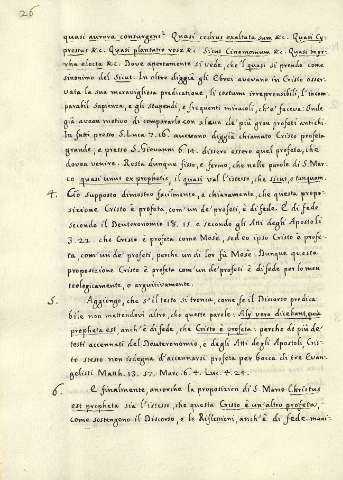 26
quasi aurora consurgens? Quasi cedrus exaltata sum &c. Quasi Cy-
pressus &c. Quasi plantatio rosæ &c. Sicut Cinamomum &c. Quasi myr-
rha electa &c. Dove apertamente si vede, che 'l quasi si prende come
sinonimo del sicut. In oltre diggià gli Ebrei avevano in Cristo osser-
vata la sua meravigliosa predicatione, li costumi irreprensibili, l'incom-
parabil sapienza, e gli stupendi, e frequenti miracoli, ch'ei faceva. Onde
già avean motivo di compararlo con alcun de' più gran profeti antichi.
In fatti presso S. Luca 7.16. avevano diggià chiamato Cristo profeta
grande, e presso S. Giovanni 6.14. dissero essere quel profeta, che
dovea venire. Resta dunque fisso, e fermo, che nelle parole di S. Mar-
co quasi unus ex prophetis, il quasi val l'istesso, che sicut, o tanquam.
4. Ciò supposto dimostro facilmente, e chiaramente, che questa propo-
sizione Cristo è profeta com'un de' profeti, è di fede. È di fede
secondo il Deuteronomio 18.15. e secondo gli Atti degli Apostoli
3.22. che Cristo è profeta come Mosè, sed eo ipso Cristo è profe-
ta, com'un de' profeti, perche un di lor fù Mosè. Dunque questa
proposizione Cristo è profeta com'un de' profeti è di fede per lo men
teologicamente, o arguitivamente.
5. Aggiungo, che s'il testo si tronca, come fe il Discorso predica-
bile non mettendovi altro, che queste parole: Aliy vero dicebant, quia
propheta est anch'è di fede, che Cristo è profeta: perche de più de'
testi accennati del Deuteronomio, e degli Atti degli Apostoli, Cri-
sto stesso non isdegna d'accennarsi profeta per bocca di tre Evan-
gelisti Matth. 13.57. Marc. 6.4. Luc. 4.24.
6. E finalmente, ancorche la proposizion di S. Marco Christus
est propheta sia l'istesso, che questa Cristo è un'altro profeta,
come sostengono il Discorso, e le Riflessioni, anch'è di fede. mani-